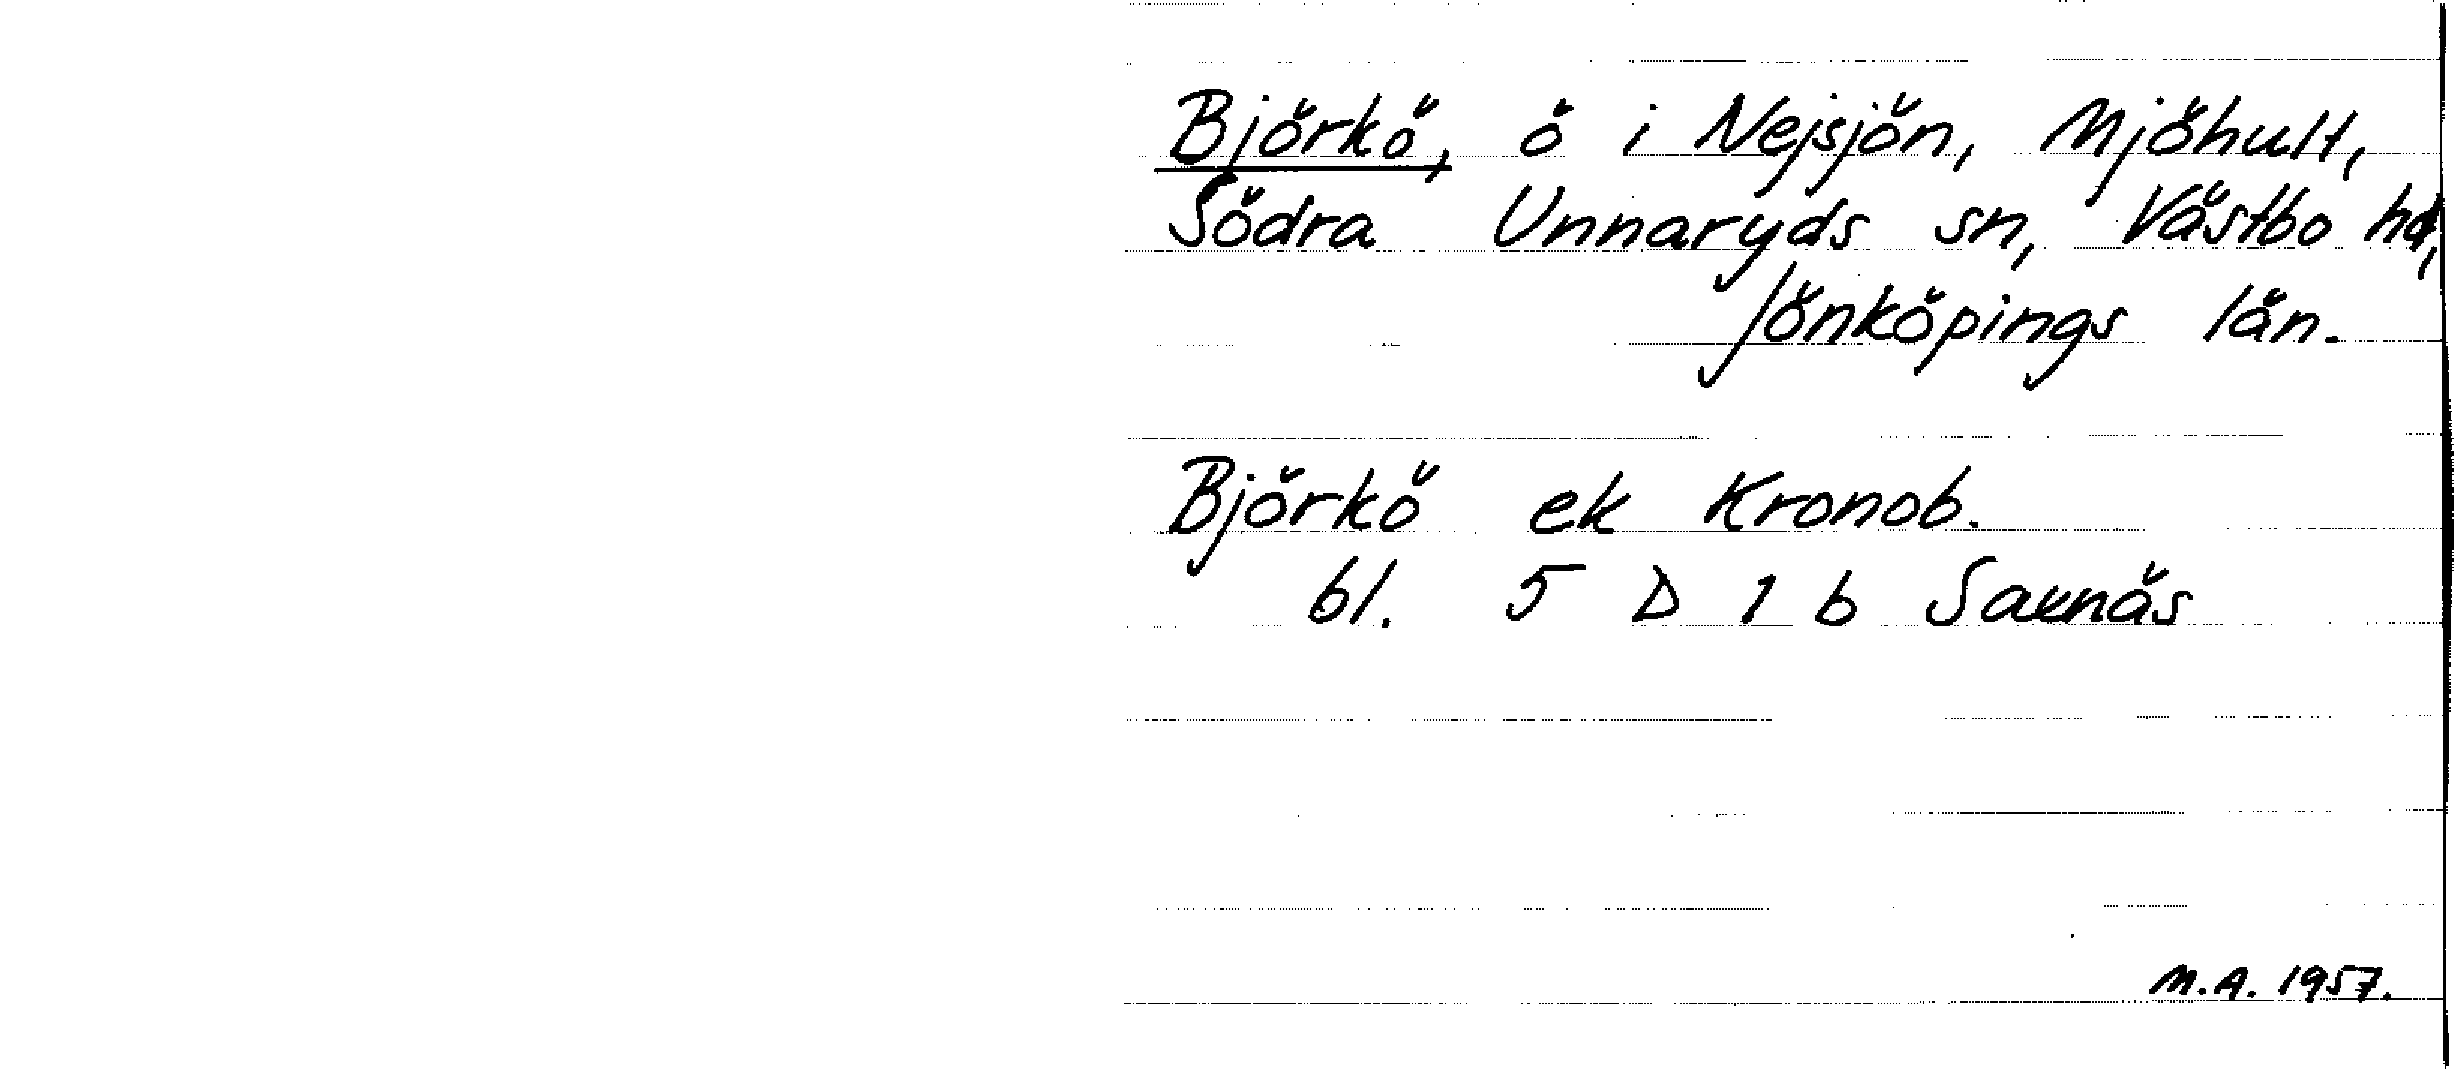 Björkö, ö i Nejsjön, Mjöhult,
Södra Unnaryds sn, Västbo hd,
Jönköpings län.
Björkö ek Kronob.
bl. 5 D 1 b Saxnäs
M.A. 1957.